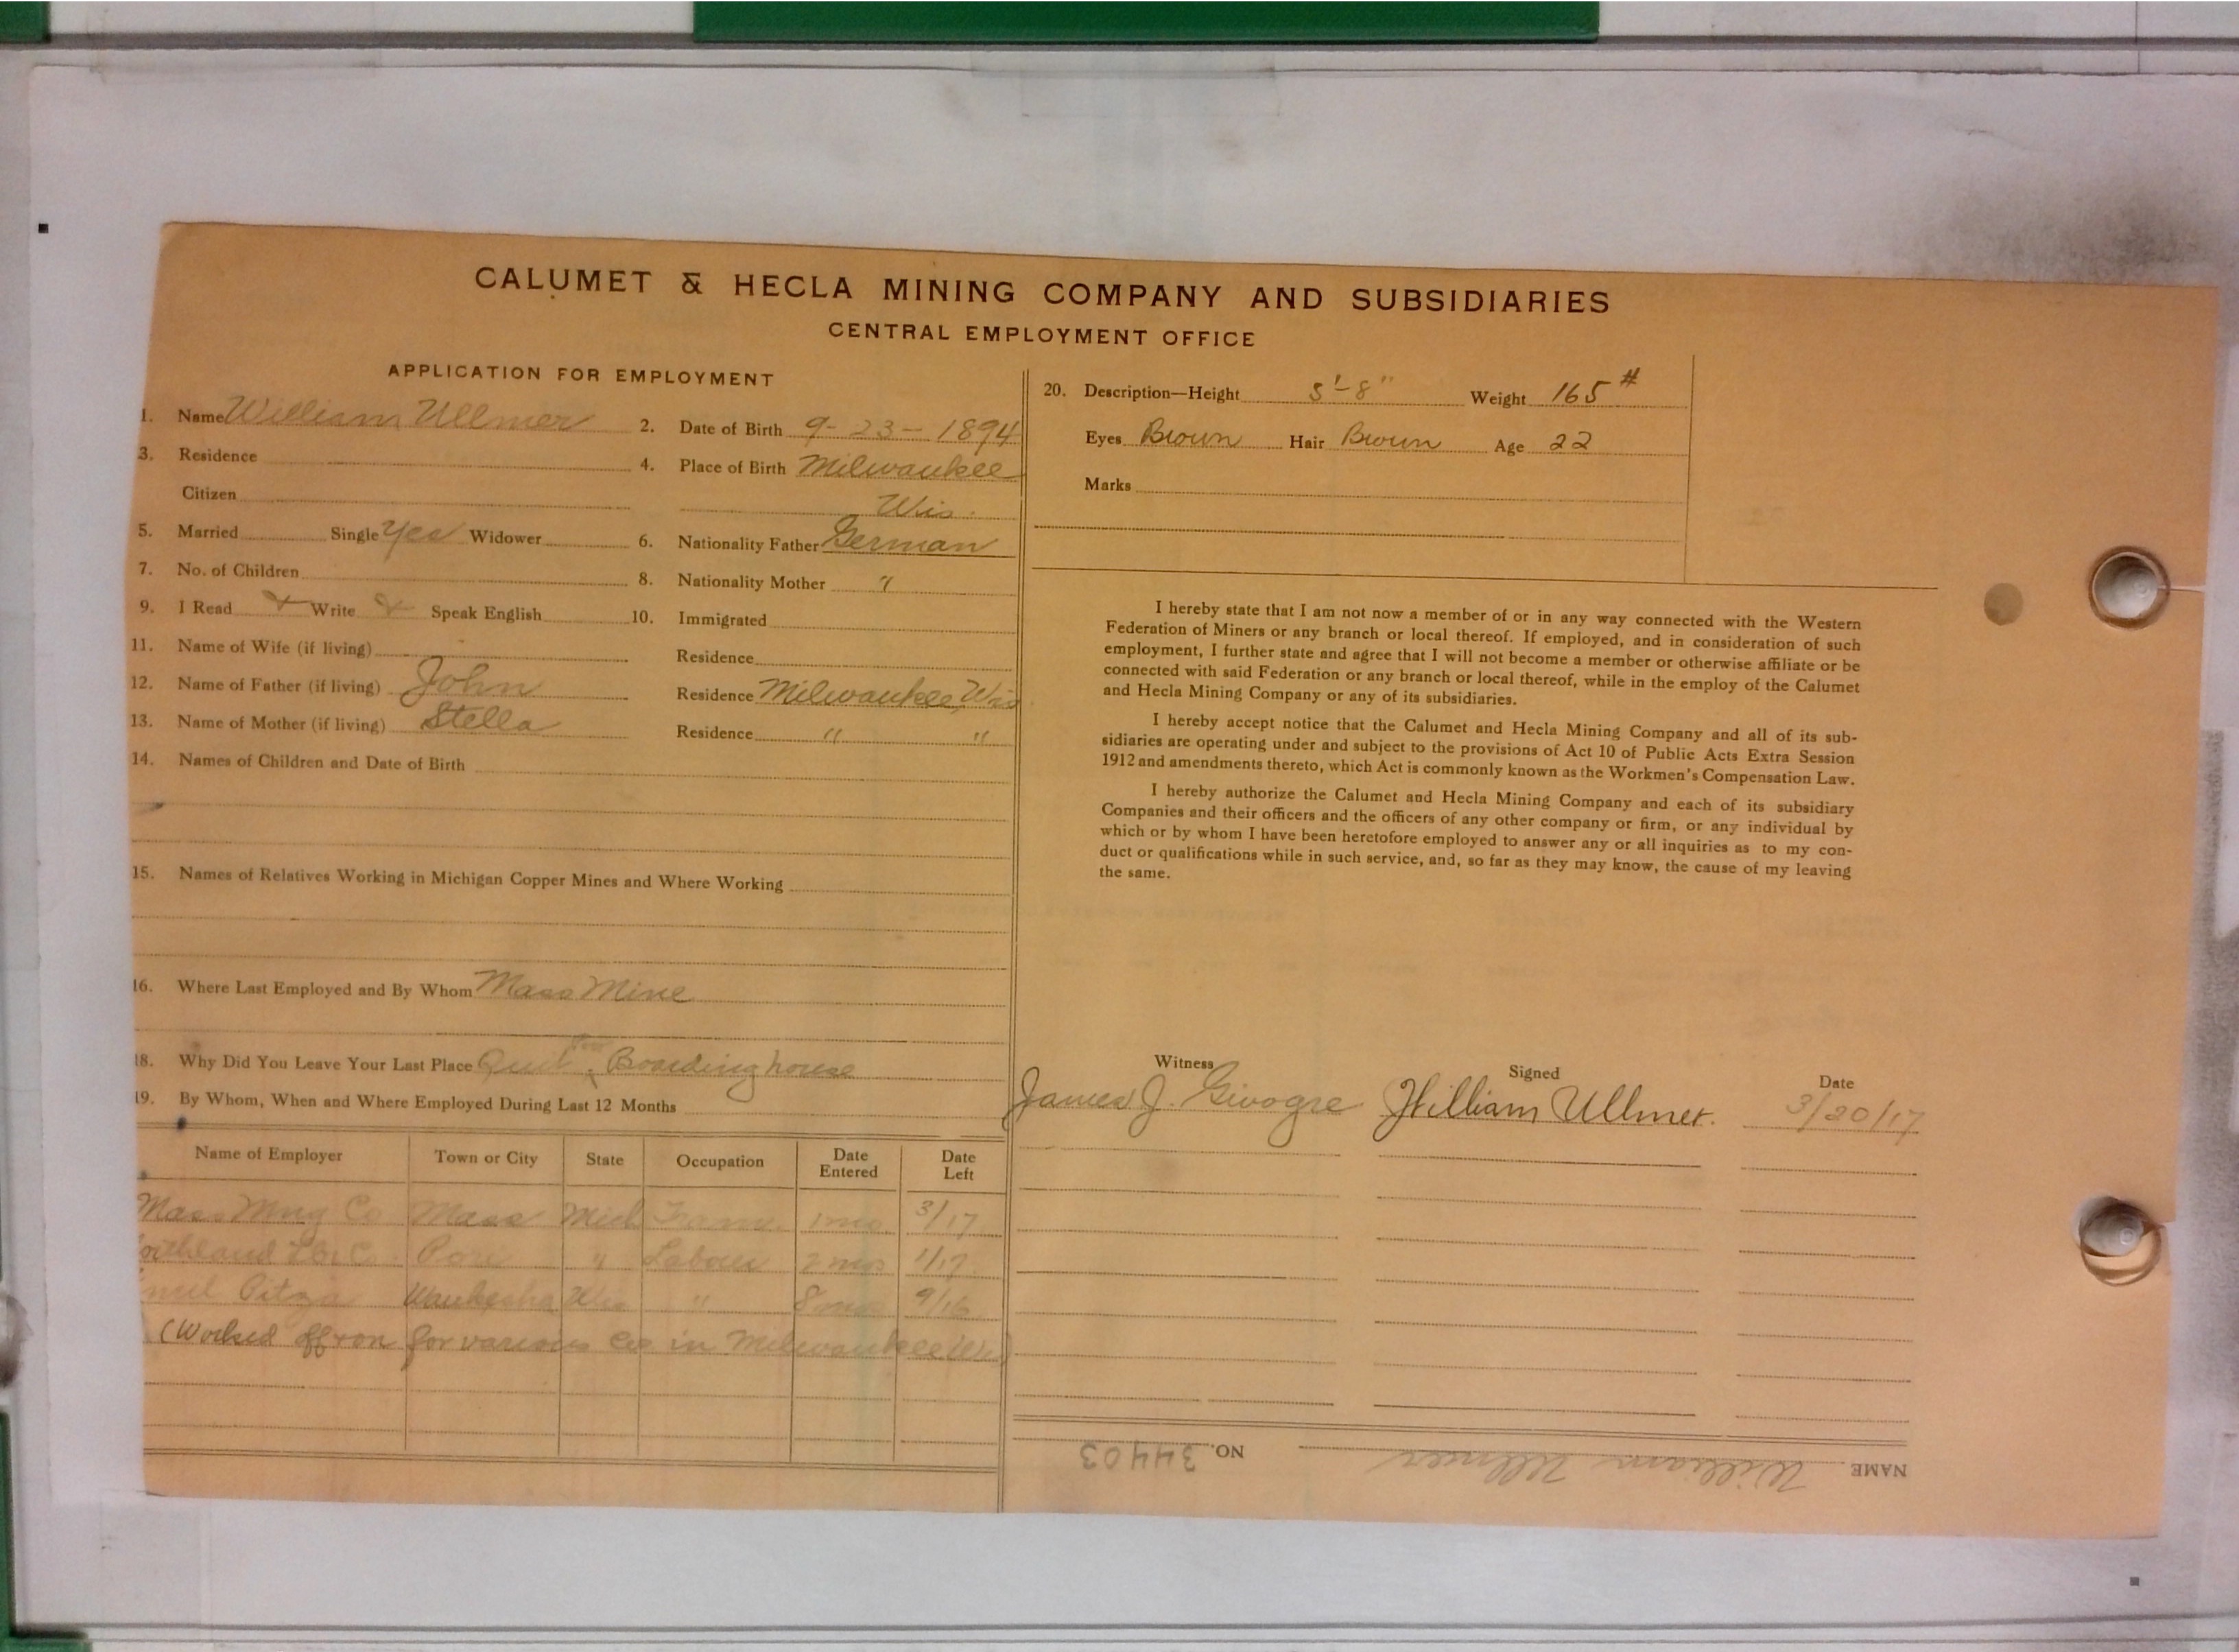 CALUMET & HECLA MINING COMPANY AND SUBSIDIARIES
CENTRAL EMPLOYMENT OFFICE
APPLICATION FOR EMPLOYMENT
1. Name William Ullmer 2. Date of Birth 9-23-1894
3. Residence 4. Place of Birth Milwaukee
Citizen Wis.
5. Married Single Yes Widower 6. Nationality Father German
7. No. of Children 8. Nationality Mother "
9. I Read Write Speak English 10. Immigrated
11. Name of Wife (if living) Residence
12. Name of Father (if living) John Residence Milwaukee, Wis
13. Name of Mother (if living) Stella Residence " "
14. Names of Children and Date of Birth
15. Names of Relatives Working in Michigan Copper Mines and Where Working
16. Where Last Employed and By Whom Mass Mine
18. Why Did You Leave Your Last Place Quit Boarding house
19. By Whom, When and Where Employed During Last 12 Months
Name of Employer Town or City State Occupation Date Entered Date Left
Mass Mng Co Mass Mich Tram. 1 mo. 3/17
" Labour 2 mos 1/17
Waukesha Wis " 8 mos 9/16
(Worked off + on for various Cos in Milwaukee Wis)
20. Description—Height 5'-8" Weight 165#
Eyes Brown Hair Brown Age 22
Marks
I hereby state that I am not now a member of or in any way connected with the Western
Federation of Miners or any branch or local thereof. If employed, and in consideration of such
employment, I further state and agree that I will not become a member or otherwise affiliate or be
connected with said Federation or any branch or local thereof, while in the employ of the Calumet
and Hecla Mining Company or any of its subsidiaries.
I hereby accept notice that the Calumet and Hecla Mining Company and all of its sub-
sidiaries are operating under and subject to the provisions of Act 10 of Public Acts Extra Session
1912 and amendments thereto, which Act is commonly known as the Workmen's Compensation Law.
I hereby authorize the Calumet and Hecla Mining Company and each of its subsidiary
Companies and their officers and the officers of any other company or firm, or any individual by
which or by whom I have been heretofore employed to answer any or all inquiries as to my con-
duct or qualifications while in such service, and, so far as they may know, the cause of my leaving
the same.
Witness Signed Date
James J. William Ullmer. 3/20/17
NAME William Ullmer NO. 34403